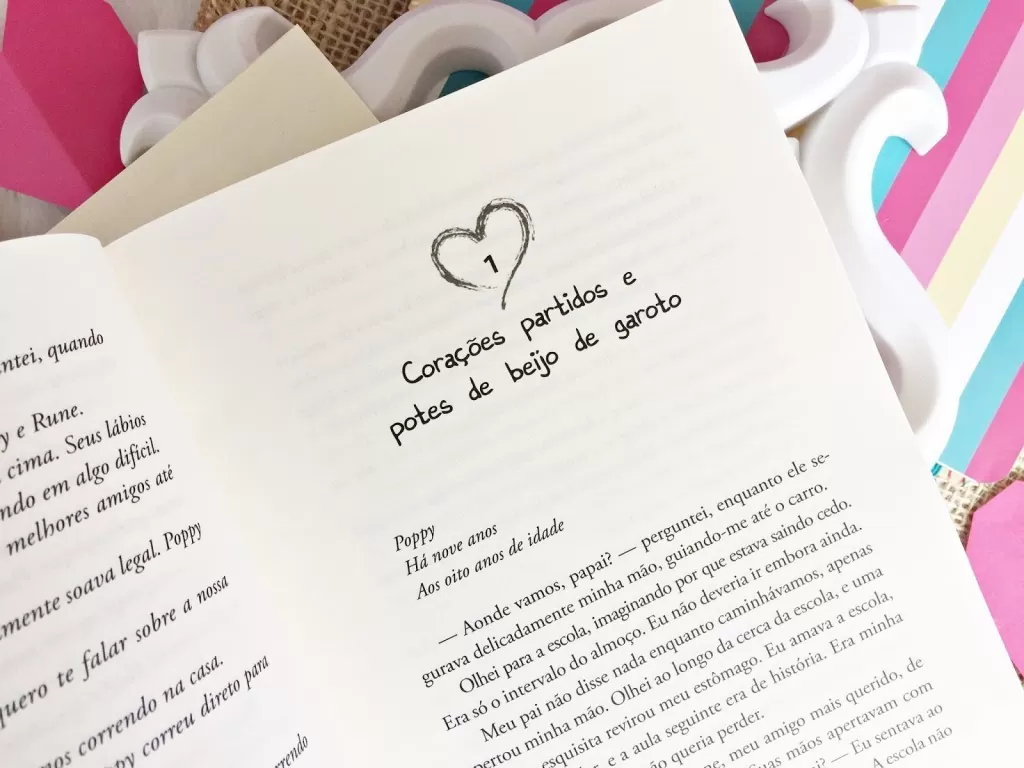 ntei, quando
y e Rune.
cima. Seus lábios
ndo em algo difícil.
melhores amigos até
mente soava legal. Poppy
quero te falar sobre a nossa
mos correndo na casa.
ppy correu direto para
rrendo
1
Corações partidos e
potes de beijo de garoto
Poppy
Há nove anos
Aos oito anos de idade
— Aonde vamos, papai? — perguntei, enquanto ele se-
gurava delicadamente minha mão, guiando-me até o carro.
Olhei para a escola, imaginando por que estava saindo cedo.
Era só o intervalo do almoço. Eu não deveria ir embora ainda.
Meu pai não disse nada enquanto caminhávamos, apenas
pertou minha mão. Olhei ao longo da cerca da escola, e uma
esquisita revirou meu estômago. Eu amava a escola,
e a aula seguinte era de história. Era minha
não queria perder.
ne, meu amigo mais querido, de
Suas mãos apertavam com
ai? — Eu sentava ao
A escola não